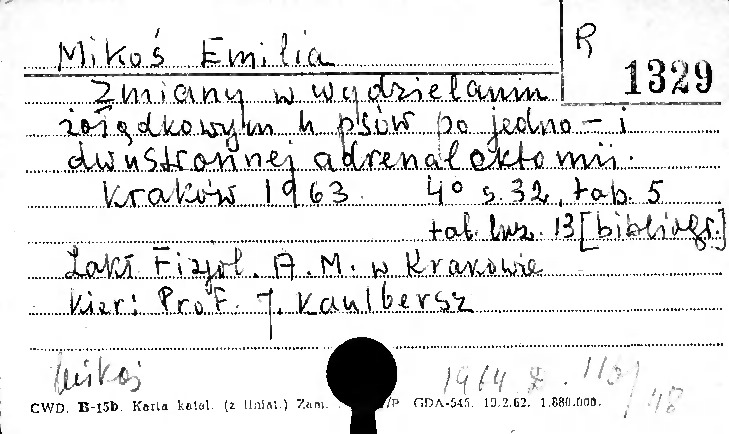 Mikoś Emilia
R
1329
Zmiany w wydzielaniu
żołądkowym u psów po jedno – i
dwustronnej adrenalektomii.
Kraków 1963. 4° s. 32, tab. 5
tab. luz. 13 [bibliogr.]
Zakł. Fizjol. A. M. w Krakowie
Kier: Prof. J. Kaulbersz
Mikoś
1964
CWD. B-15b. Karta katal. (z liniat.) Zam. /P GDA-545. 19.2.62. 1.880.000.